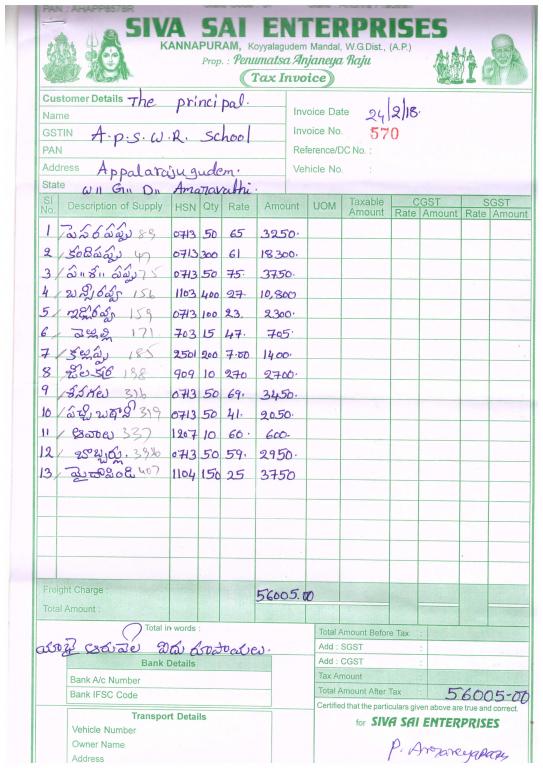 PAN : AHAPP8578R
SIVA SAI ENTERPRISES
KANNAPURAM, Koyyalagudem Mandal, W.G.Dist., (A.P.)
Prop. : Penumatsa Anjaneya Raju
Tax Invoice
Customer Details The principal.
Name
GSTIN A.p.S.W.R. School
PAN
Address Appalarajugudem.
State W" G" D" Amaravathi.
Invoice Date 24/2/18.
Invoice No. 570
Reference/DC No. :
Vehicle No. :
Sl No Description of Supply HSN Qty Rate Amount UOM Taxable Amount CGST Rate Amount SGST Rate Amount
1 పెసరపప్పు 89 0713 50 65 3250.
2 కందిపప్పు 0713 300 61 18300.
3 ప" శ" పప్పు 0713 50 75. 3750.
4 బన్సీరవ్వ 156 1103 400 27. 10,800
5 ఇడ్లీరవ్వ 159 0713 100 23. 2300.
6 వెల్లుల్లి 171 703 15 47. 705.
7 కల్లుప్పు 185 2501 200 7.00 1400.
8 జీలకర్ర 198 909 10 270 2700.
9 శనగలు 316 0713 50 69. 3450.
10 పచ్చి బఠాని 319 0713 50 41. 2050.
11 ఆవాలు 337 1207 10 60. 600.
12 బొబ్బర్లు. 0713 50 59. 2950.
13 మైదాపిండి 407 1104 150 25 3750
Freight Charge : 56005.00
Total Amount :
Total in words :
యాభై ఆరువేల ఐదు రూపాయలు.
Bank Details
Bank A/c Number
Bank IFSC Code
Total Amount Before Tax :
Add : SGST :
Add : CGST :
Tax Amount :
Total Amount After Tax : 56005-00
Certified that the particulars given above are true and correct.
for SIVA SAI ENTERPRISES
Transport Details
Vehicle Number
Owner Name
Address